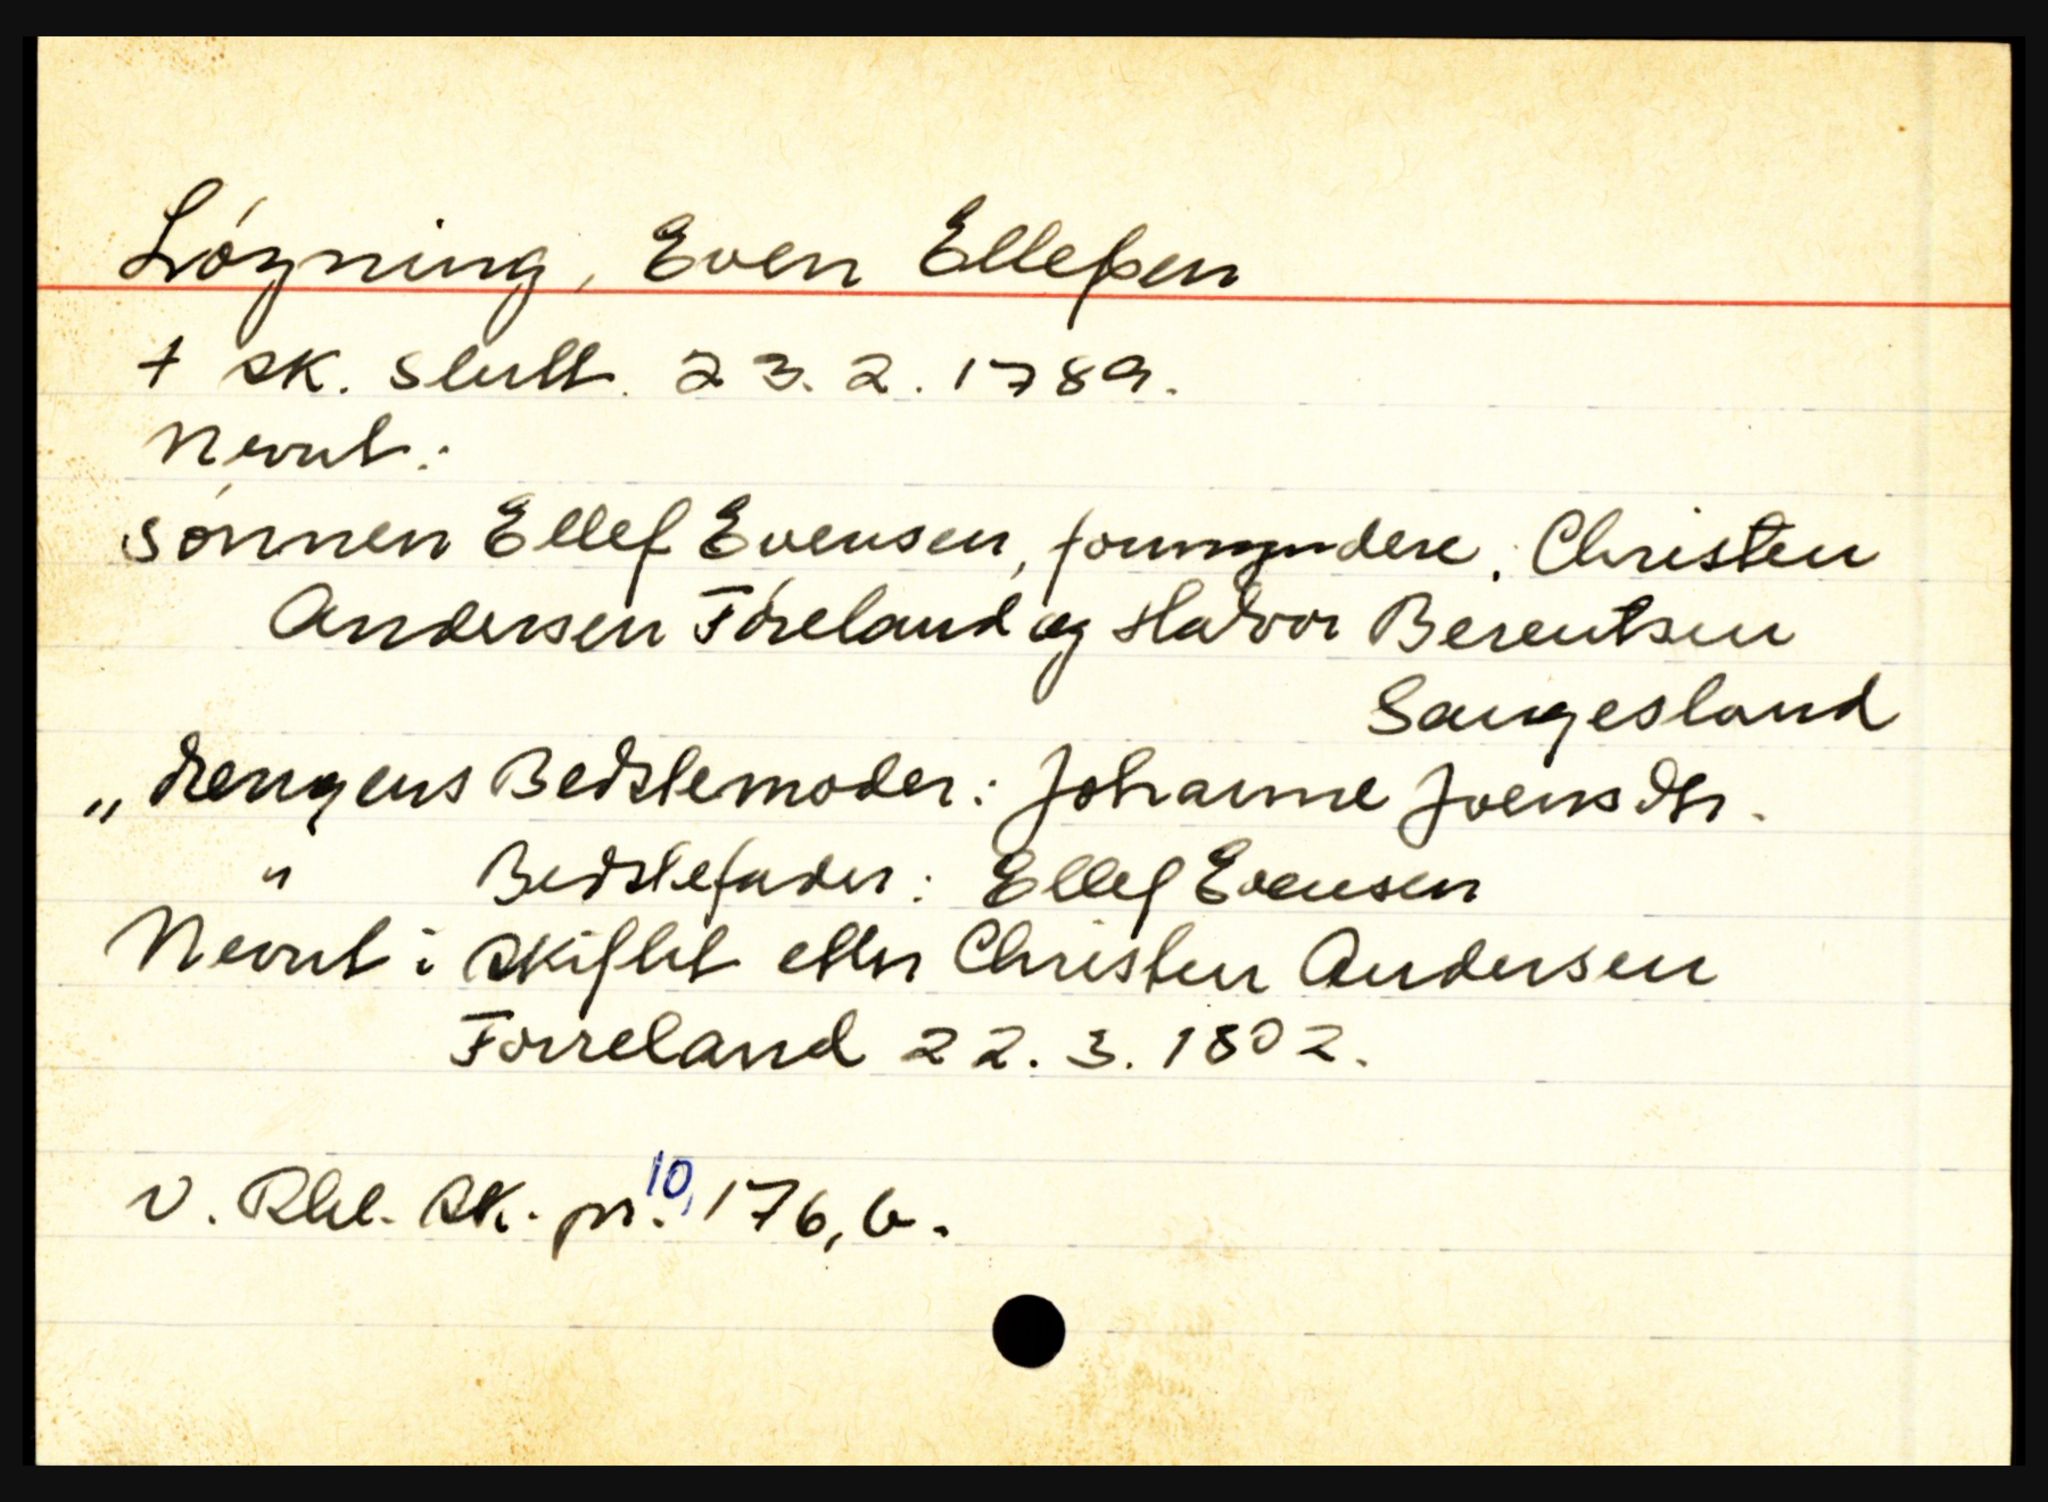 Lóyning, Even Ellefsen
+ sk. slutt. 23.2.1789.
Nevnt:
sónnen Ellef Evensen, formyndere: Christen
Andersen Fóreland og Halvor Berentsen
Saugesland
„drengens Bedstemoder: Johanne Joensdtr.
" Bedstefader: Ellef Evensen
Nevnt i skiftet etter Christen Andersen
Forreland 22.3.1802.
V. Rbl. sk. pr. 10, 176, b.